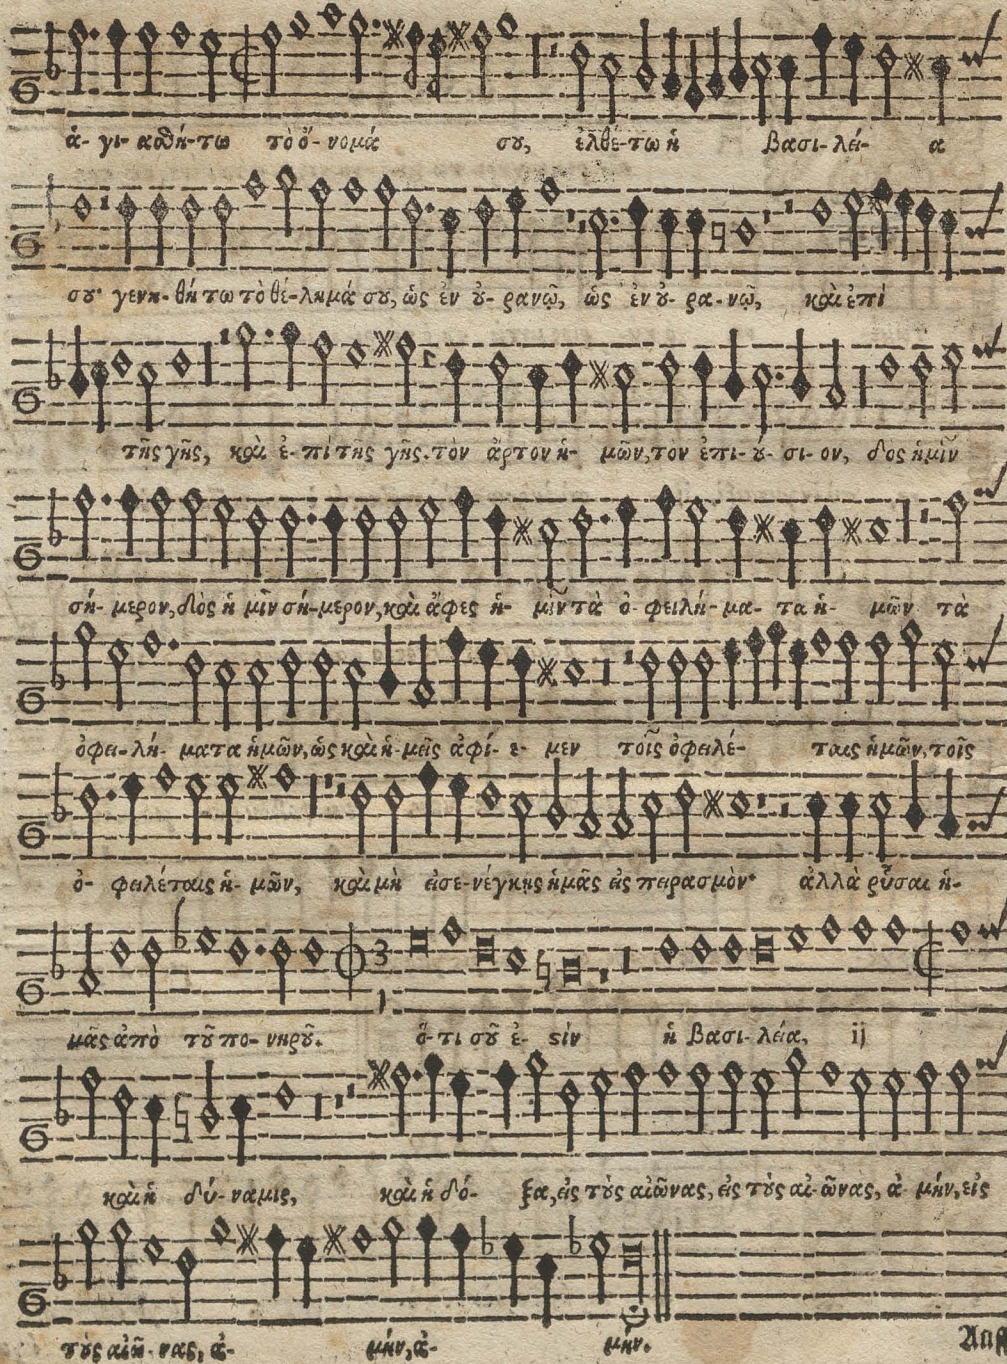 ἁ- γι- αϑή-τω τὸ ὄ-νομά σȣ, ἐλθέ-τω ἡ βασι- λεί- α
σȣ· γενη-θή τω τὸ θέ-λημά σȣ, ὡς ἐν ȣ̓- ρανῷ, ὡς ἐν ȣ̓- ρα-νῷ, καὶ ἐπὶ
τῆς γῆς, καὶ ἐ-πὶ τῆς γῆς. τὸν ἄρτον ἡ- μῶν, τὸν ἐπι-ȣ́- σι- ον, δὸς ἡμῖν
σή- μερον, δὸς ἡ μῖν σή-μερον, καὶ ἄφες ἡ- μῖν τὰ ὀ- φειλή- μα- τα ἡ- μῶν τὰ
ὀφει-λή- ματα ἡμῶν, ὡς καὶ ἡ-μεῖς ἀφί- ε- μεν τοῖς ὀφειλέ- ταις ἡμῶν, τοῖς
ὀ- φειλέταις ἡ- μῶν, καὶ μὴ εἰσε-νέγκῃς ἡμᾶς εἰς πειρασμὸν· ἀλλὰ ῥῦσαι ἡ-
μᾶς ἀπὸ τȣ͂ πο- νηρȣ͂. 3 ὅ-τι σȣ͂ ἐ- ϛὶν ἡ βασι- λεία, ij
καὶ ἡ δύ- ναμις, καὶ ἡ δό- ξα, εἰς τȣ̀ς αἰῶνας, εἰς τȣ̀ς αἰ-ῶνας, ἀ- μήν, εἰς
τȣ̀ς αἰῶ- νας, ἀ- μήν, ἀ- μήν.